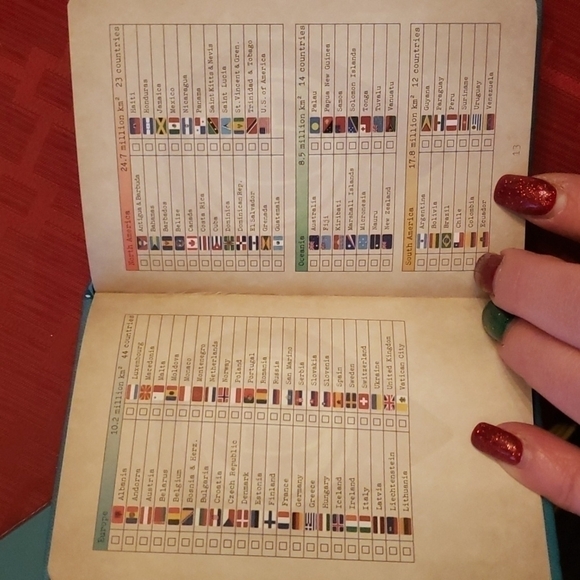 Europe 10.2 million km² 44 countries
Albania Luxembourg
Andorra Macedonia
Austria Malta
Belarus Moldova
Belgium Monaco
Bosnia & Herz. Montenegro
Bulgaria Netherlands
Croatia Norway
Czech Republic Poland
Denmark Portugal
Estonia Romania
Finland Russia
France San Marino
Germany Serbia
Greece Slovakia
Hungary Slovenia
Iceland Spain
Ireland Sweden
Italy Switzerland
Latvia Ukraine
Liechtenstein United Kingdom
Lithuania Vatican City
North America 24.7 million km² 23 countries
Antigua & Barbuda Haiti
Bahamas Honduras
Barbados Jamaica
Belize Mexico
Canada Nicaragua
Costa Rica Panama
Cuba Saint Kitts & Nevis
Dominica Saint Lucia
Dominican Rep. St.Vincent & Gren.
El Salvador Trinidad & Tobago
Grenada U.S. of America
Guatemala
Oceania 8.5 million km² 14 countries
Australia Palau
Fiji Papua New Guinea
Kiribati Samoa
Marshall Islands Solomon Islands
Micronesia Tonga
Nauru Tuvalu
New Zealand Vanuatu
South America 17.8 million km² 12 countries
Argentina Guyana
Bolivia Paraguay
Brazil Peru
Chile Suriname
Colombia Uruguay
Ecuador Venezuela
13